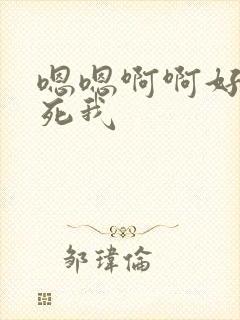 嗯嗯啊啊好
死我
邹瑋倫